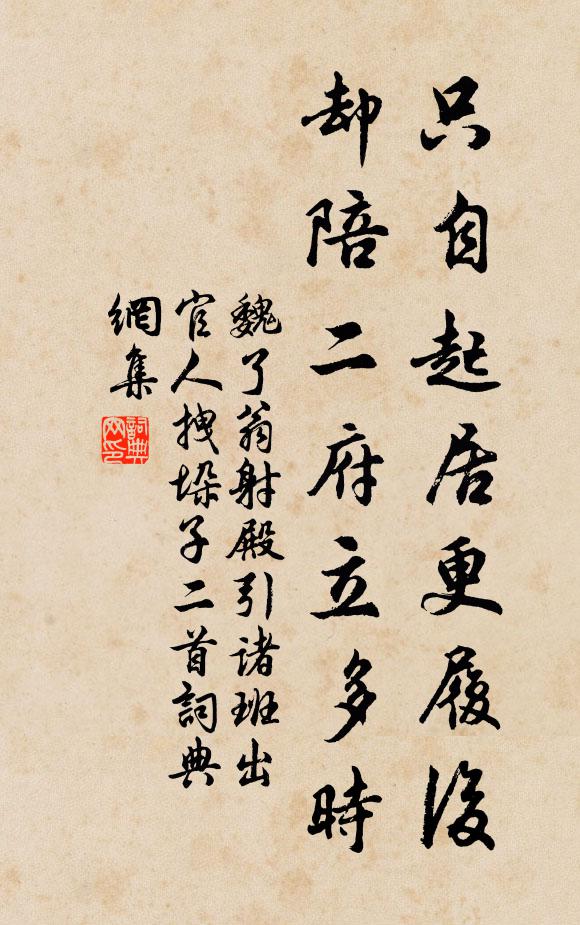 只自起居更履後
却陪二府立多時
魏了翁射殿引諸班出
官人拽垛子二首詞典
網集
詞典網印